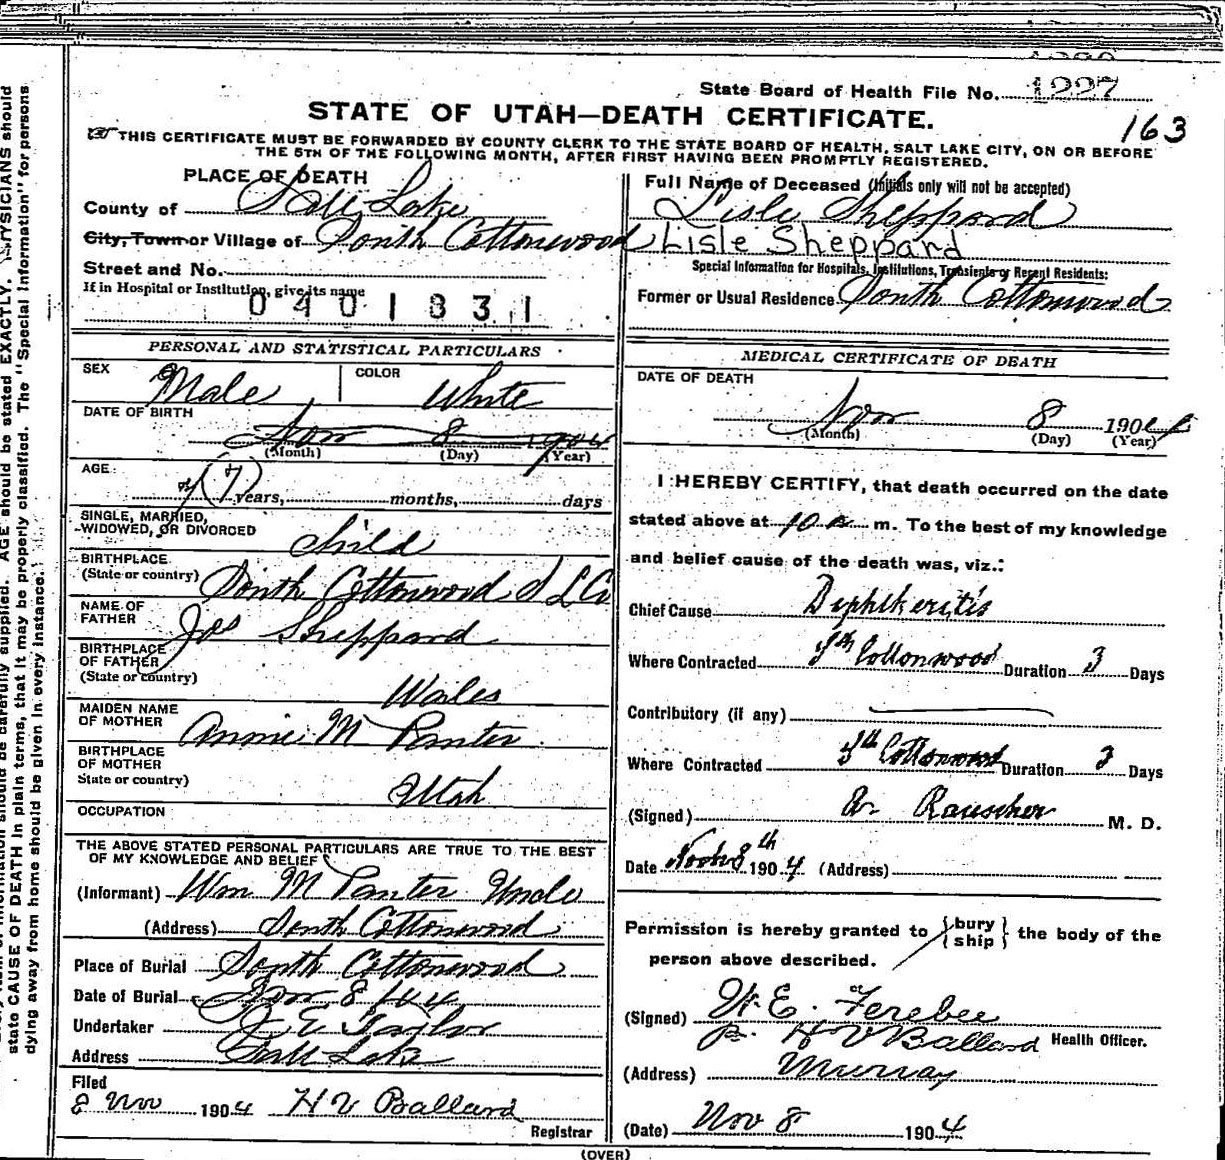 State Board of Health File No. 1227
163
STATE OF UTAH—DEATH CERTIFICATE.
THIS CERTIFICATE MUST BE FORWARDED BY COUNTY CLERK TO THE STATE BOARD OF HEALTH, SALT LAKE CITY, ON OR BEFORE
THE 5TH OF THE FOLLOWING MONTH, AFTER FIRST HAVING BEEN PROMPTLY REGISTERED.
PLACE OF DEATH
County of Salt Lake
City, Town or Village of South Cottonwood
Street and No.
If in Hospital or Institution, give its name
0401831
Full Name of Deceased (Initials only will not be accepted)
Lisle Sheppard
Lisle Sheppard
Special Information for Hospitals, Institutions, Transients or Recent Residents:
Former or Usual Residence South Cottonwood
PERSONAL AND STATISTICAL PARTICULARS
SEX Male COLOR White
DATE OF BIRTH
Nov 8 1904
(Month) (Day) (Year)
AGE
(7) years, months, days
SINGLE, MARRIED,
WIDOWED, OR DIVORCED child
BIRTHPLACE
(State or country) South Cottonwood S L Co
NAME OF
FATHER Jos Sheppard
BIRTHPLACE
OF FATHER
(State or country) Wales
MAIDEN NAME
OF MOTHER Annie M Panter
BIRTHPLACE
OF MOTHER
State or country) Utah
OCCUPATION
THE ABOVE STATED PERSONAL PARTICULARS ARE TRUE TO THE BEST
OF MY KNOWLEDGE AND BELIEF
(Informant) Wm M Panter Uncle
(Address) South Cottonwood
Place of Burial South Cottonwood
Date of Burial Nov 8 / 04
Undertaker J. E Taylor
Address Salt Lake
Filed
8 Nov 1904 H V Ballard
Registrar
MEDICAL CERTIFICATE OF DEATH
DATE OF DEATH
Nov 8 1904
(Month) (Day) (Year)
I HEREBY CERTIFY, that death occurred on the date
stated above at 10 a m. To the best of my knowledge
and belief cause of the death was, viz.:
Chief Cause Diphtheritis
Where Contracted Sth Cottonwood Duration 3 Days
Contributory (if any)
Where Contracted Sth Cottonwood Duration 3 Days
(Signed) Rauscher M. D.
Date Novbr 8th 1904 (Address)
Permission is hereby granted to {bury
ship} the body of the
person above described.
(Signed) W. E. Ferebee
H V Ballard Health Officer.
(Address) Murray
(Date) Nov 8 1904
(OVER)
AGE should be stated EXACTLY. PHYSICIANS should
state CAUSE OF DEATH in plain terms, that it may be properly classified. The "Special Information" for persons
dying away from home should be given in every instance.